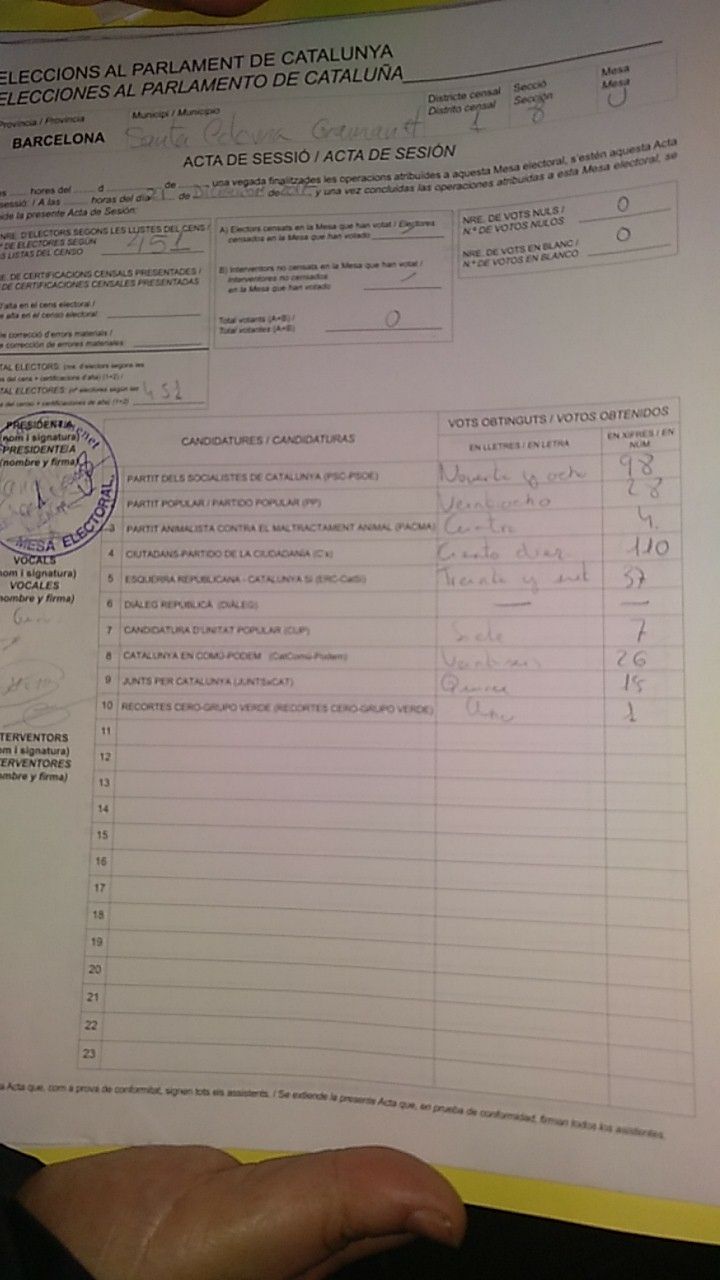 ELECCIONS AL PARLAMENT DE CATALUNYA
ELECCIONES AL PARLAMENTO DE CATALUÑA
Provincia / Provincia Municipi / Municipio Districte censal Secció Mesa
Distrito censal Sección Mesa
BARCELONA Santa Coloma Gramanet 1 8 U
ACTA DE SESSIÓ / ACTA DE SESIÓN
hores del d de una vegada finalitzades les operacions atribuïdes a aquesta Mesa electoral, s'estén aquesta Acta
sessió: / A las horas del día 21 de Diciembre de y una vez concluidas las operaciones atribuidas a esta Mesa electoral, se
ide la presente Acta de Sesión:
NRE. D'ELECTORS SEGONS LES LLISTES DEL CENS /
º DE ELECTORES SEGÚN
S LISTAS DEL CENSO 451
E. DE CERTIFICACIONS CENSALS PRESENTADES /
DE CERTIFICACIONES CENSALES PRESENTADAS
d'alta en el cens electoral /
e alta en el censo electoral
e correcció d'errors materials /
e corrección de errores materiales
TAL ELECTORS: (nre. d'electors segons les
s del cens + certificacions d'alta) (1+2) /
TAL ELECTORES: (nº electores según las
s del censo + certificaciones de alta) (1+2) 451
A) Electors censats en la Mesa que han votat / Electores
censados en la Mesa que han votado
B) Interventors no censats en la Mesa que han votat /
Interventores no censados
en la Mesa que han votado
Total votants (A+B) /
Total votantes (A+B) 0
NRE. DE VOTS NULS /
N.º DE VOTOS NULOS 0
NRE. DE VOTS EN BLANC /
N.º DE VOTOS EN BLANCO 0
PRESIDENT/A
(nom i signatura)
PRESIDENTE/A
(nombre y firma)
MESA ELECTORAL
VOCALS
nom i signatura)
VOCALES
nombre y firma)
TERVENTORS
om i signatura)
TERVENTORES
ombre y firma)
CANDIDATURES / CANDIDATURAS VOTS OBTINGUTS / VOTOS OBTENIDOS
EN LLETRES / EN LETRA EN XIFRES / EN NÚM.
PARTIT DELS SOCIALISTES DE CATALUNYA (PSC-PSOE) Noventa y ocho 98
PARTIT POPULAR / PARTIDO POPULAR (PP) Veintiocho 28
3 PARTIT ANIMALISTA CONTRA EL MALTRACTAMENT ANIMAL (PACMA) Cuatro 4.
4 CIUTADANS-PARTIDO DE LA CIUDADANÍA (C's) Ciento diez 110
5 ESQUERRA REPUBLICANA - CATALUNYA SÍ (ERC-CatSí) Treinta y siete 37
6 DIÀLEG REPUBLICÀ (DIÀLEG) — —
7 CANDIDATURA D'UNITAT POPULAR (CUP) Siete 7
8 CATALUNYA EN COMÚ-PODEM (CatComú-Podem) Veintiseis 26
9 JUNTS PER CATALUNYA (JUNTSxCAT) Quince 15
10 RECORTES CERO-GRUPO VERDE (RECORTES CERO-GRUPO VERDE) Uno 1
11
12
13
14
15
16
17
18
19
20
21
22
23
a Acta que, com a prova de conformitat, signen tots els assistents. / Se extiende la presente Acta que, en prueba de conformidad, firman todos los asistentes.